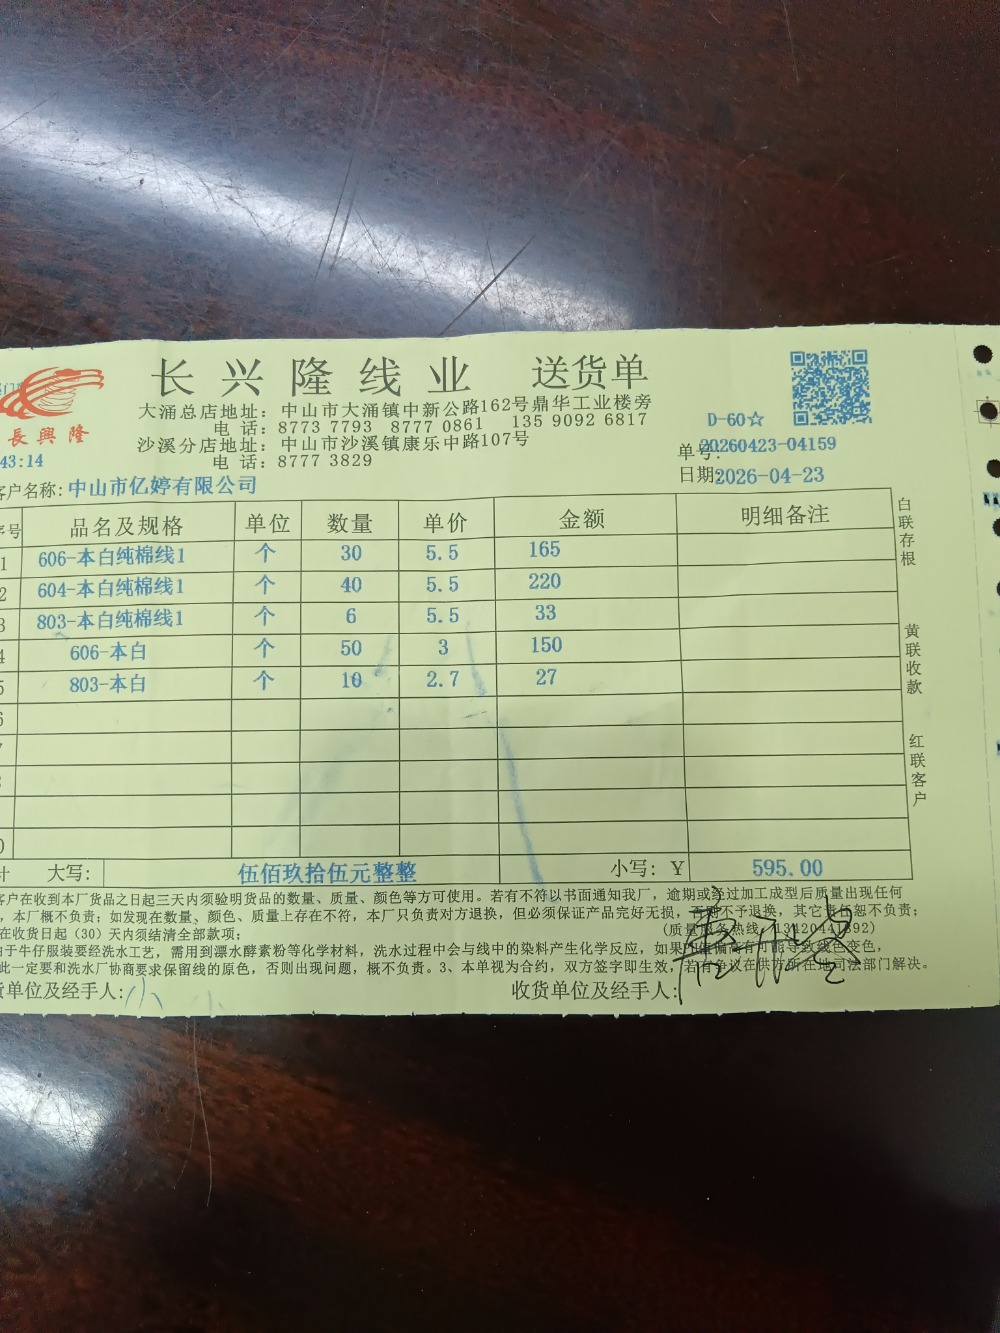 长兴隆线业 送货单
大涌总店地址：中山市大涌镇中新公路162号鼎华工业楼旁
电 话：8773 7793 8777 0861 135 9092 6817
沙溪分店地址：中山市沙溪镇康乐中路107号
电 话：8777 3829
長興隆
43:14
D-60☆
单号：20260423-04159
日期：2026-04-23
客户名称：中山市亿婷有限公司
序号 品名及规格 单位 数量 单价 金额 明细备注
1 606-本白纯棉线1 个 30 5.5 165
2 604-本白纯棉线1 个 40 5.5 220
3 803-本白纯棉线1 个 6 5.5 33
4 606-本白 个 50 3 150
5 803-本白 个 10 2.7 27
6
7
8
0
计 大写：伍佰玖拾伍元整整 小写：¥ 595.00
白联存根
黄联收款
红联客户
客户在收到本厂货品之日起三天内须验明货品的数量、质量、颜色等方可使用。若有不符以书面通知我厂，逾期或经过加工成型后质量出现任何
，本厂概不负责；如发现在数量、颜色、质量上存在不符，本厂只负责对方退换，但必须保证产品完好无损，否则不予退换，其它责任恕不负责；
在收货日起（30）天内须结清全部款项； （质量服务热线：13420441892）
由于牛仔服装要经洗水工艺，需用到漂水酵素粉等化学材料，洗水过程中会与线中的染料产生化学反应，如果PH值偏高有可能导致线色变色，
此一定要和洗水厂协商要求保留线的原色，否则出现问题，概不负责。3、本单视为合约，双方签字即生效，若有争议在供方所在地司法部门解决。
货单位及经手人： 收货单位及经手人：